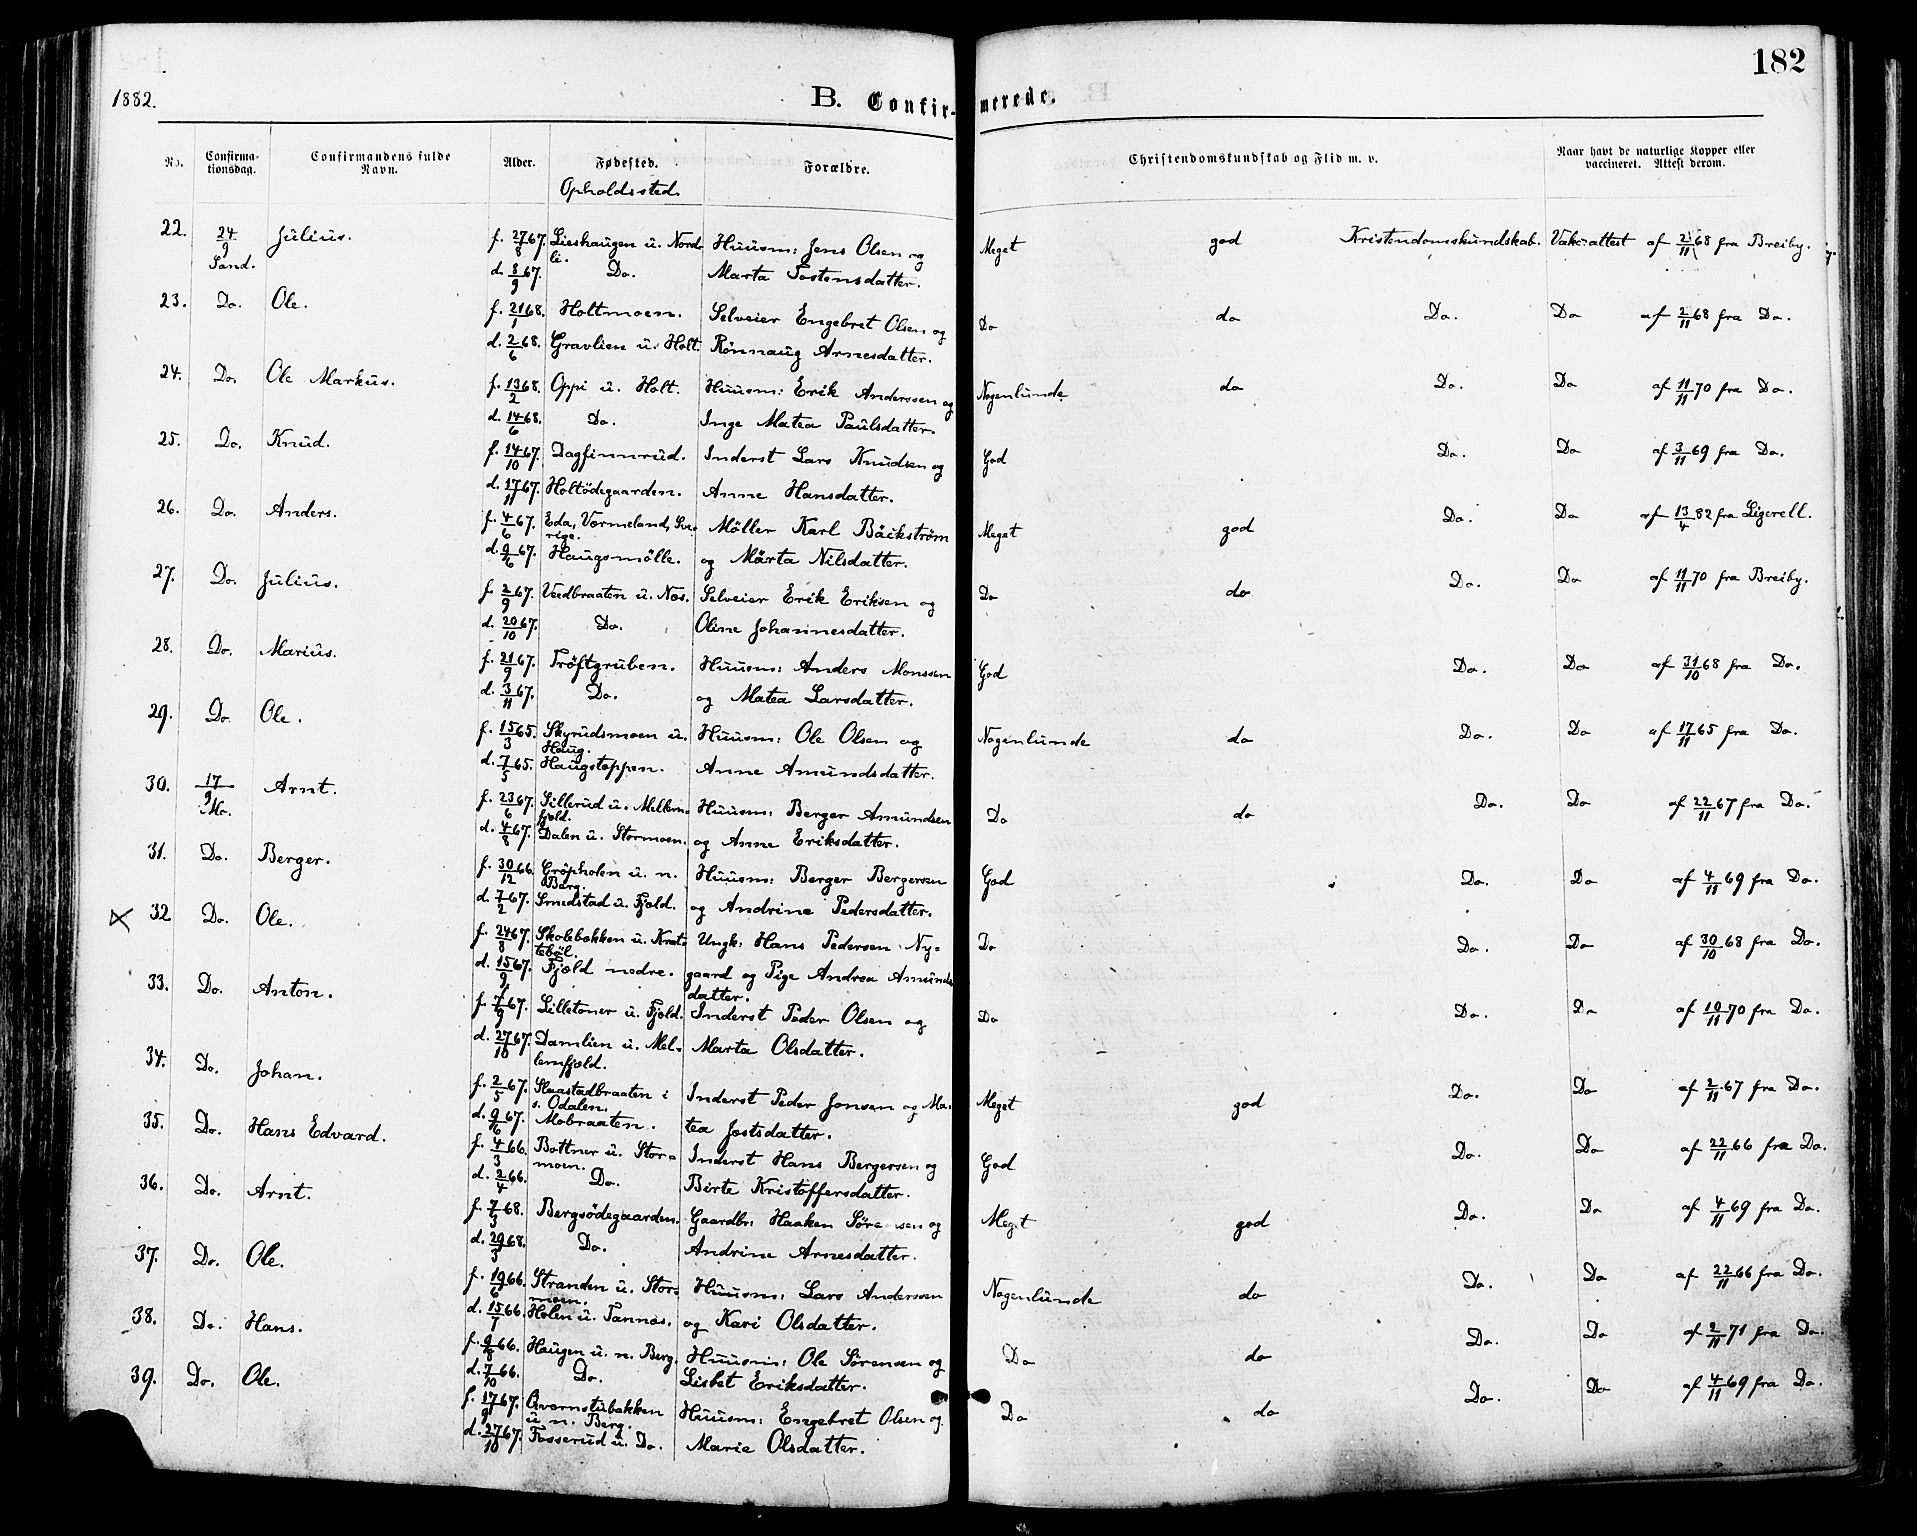 182
1882.
B. Confirmerede.
No.
Confirma-
tionsdag.
Confirmandens fulde
Navn.
Alder.
Fødested.
Opholdssted.
Forældre.
Christendomskundskab og Flid m. v.
Naar havt de naturlige Kopper eller
vaccineret. Attest derom.
22. 24/9 Julius. f. 27/8 67. Lieshaugen u. Nord- Huusm: Jens Olsen og Meget god Kristendomskundskab. Vakc-attest af 2/11 68 fra Breiby.
Sand. d. 8/9 67. li. Do. Marta Tostensdatter.
23. Do. Ole. f. 21/1 68. Holtmoen. Selveier Engebret Olsen og Do do Do. Do af 2/11 68 fra Do.
d. 2/6 68. Gravlien u. Holt. Rönnaug Arnesdatter.
24. Do. Ole Markus. f. 13/2 68. Oppi u. Holt. Huusm: Erik Anderssen og Nogenlunde do Do. Do af 11/11 70 fra Do.
d. 14/6 68. Do. Inge Matea Paulsdatter.
25. Do. Knud. f. 14/10 67. Dagfinnrud. Inderst Lars Knudsen og God Do. Do af 3/11 69 fra Do.
d. 17/11 67. Holtödegaarden. Anne Hansdatter.
26. Do. Anders. f. 4/6 67. Eda, Værmeland, Sve- Möller Karl Bäickström Meget god Do. Do af 13/4 82 fra Ligerell.
rige.
d. 9/6 67. Haugsmölle. og Märta Nilsdatter.
27. Do. Julius. f. 2/9 67. Veedbraaten u. Næs. Selveier Erik Eriksen og Do do Do. Do af 11/11 70 fra Breiby.
d. 20/10 67. Do. Oline Johannesdatter.
28. Do. Marius. f. 21/9 67. Tröftgruben. Huusm: Anders Monssen God Do. Do af 31/10 68 fra Do.
d. 3/11 67. Do. og Matea Larsdatter.
29. Do. Ole. f. 15/3 65. Skyrudsmoen u. Huusm: Ole Olsen og Nogenlunde do Do. Do af 17/11 65 fra Do.
Haug.
d. 7/5 65. Haugstoppen. Anne Amundsdatter.
30. 17/9 Arnt. f. 23/6 67. Lillerud u. Mellem- Huusm: Berger Amundsen Do do Do. Do af 22/11 67 fra Do.
Mo. fjeld.
d. 4/8 67. Dalen u. Stormoen. og Anne Eriksdatter.
31. Do. Berger. f. 30/12 66. Gröpholen u. n. Huusm: Berger Bergersen God Do. Do af 4/11 69 fra Do.
Berg.
d. 7/2 67. Smedstad u. Fjeld. og Andrine Pedersdatter.
32 Do. Ole. f. 24/8 67. Skolebækken u. Kræt- Ungk: Hans Pedersen Ny- Do Do. Do af 30/10 68 fra Do.
teböl.
d. 15/9 67. Fjæld nedre. gaard og Pige Andrea Amunds
datter.
33. Do. Anton. f. 7/9 67. Lilletoner u. Fjeld. Inderst Peder Olsen og Do Do. Do af 10/11 70 fra Do.
d. 27/10 67. Damlien u. Mel- Marta Olsdatter.
lemfjeld.
34. Do. Johan. f. 2/5 67. Slaastadbraaten i Inderst Peder Jonsen og Ma- Meget god Do. Do af 2/11 67 fra Do.
s. Odalen.
d. 9/6 67. Mobraaten. tea Jostsdatter.
35. Do. Hans Edvard. f. 4/3 66. Bottner u. Stor- Inderst Hans Bergersen og God Do. Do af 22/11 66 fra Do.
moen.
d. 2/4 66. Do. Birte Kristoffersdatter.
36. Do. Arnt. f. 7/3 68. Bergsödegaarden. Gaardbr: Haaken Sörensen og Meget god Do. Do af 4/11 69 fra Do.
d. 29/3 68. Do. Andrine Arnesdatter.
37. Do. Ole. f. 19/6 66. Stranden u. Stor- Huusm: Lars Anderssen Nogenlunde do Do. Do af 22/11 66 fra Do.
moen.
d. 15/7 66. Holen u. Tannæs. og Kari Olsdatter.
38. Do. Hans. f. 9/8 66. Haugen u. n. Berg. Huusm: Ole Sörensen og Do do Do. Do af 2/11 71 fra Do.
d. 7/10 66. Do. Lisbet Eriksdatter.
39. Do. Ole. f. 17/9 67. Qværnstubakken Huusm: Engebret Olsen og Do do Do. Do af 4/11 69 fra Do.
u. n. Berg.
d. 27/10 67. Fosserud u. Do. Marie Olsdatter.